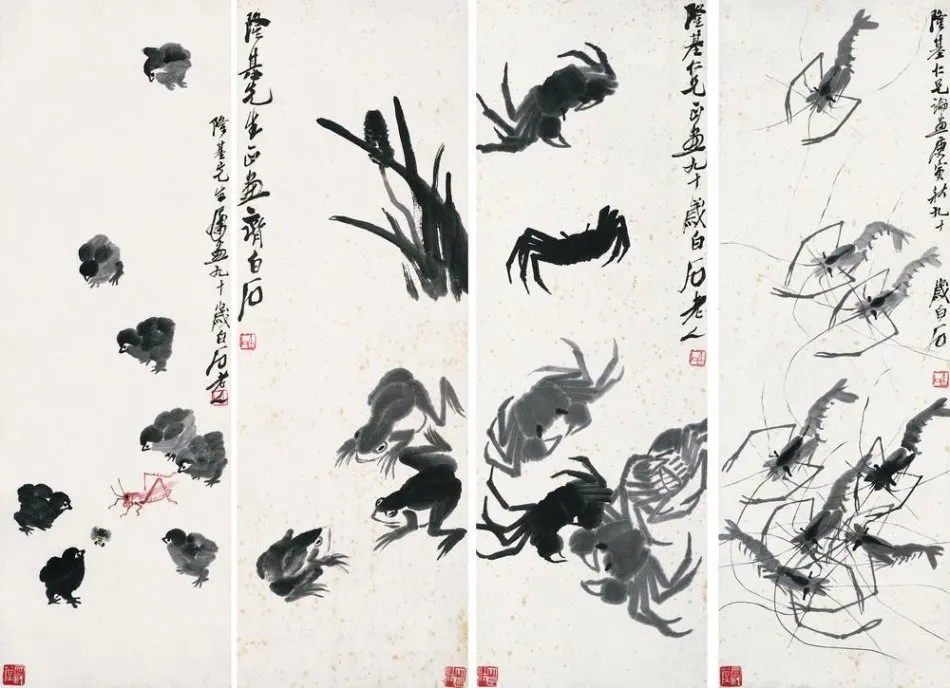 隆基仁兄畫庚寅秋九十歲白石
隆基仁兄正畫九十歲白石老人
隆基先生正畫齊白石
隆基先生屬畫九十歲白石老人